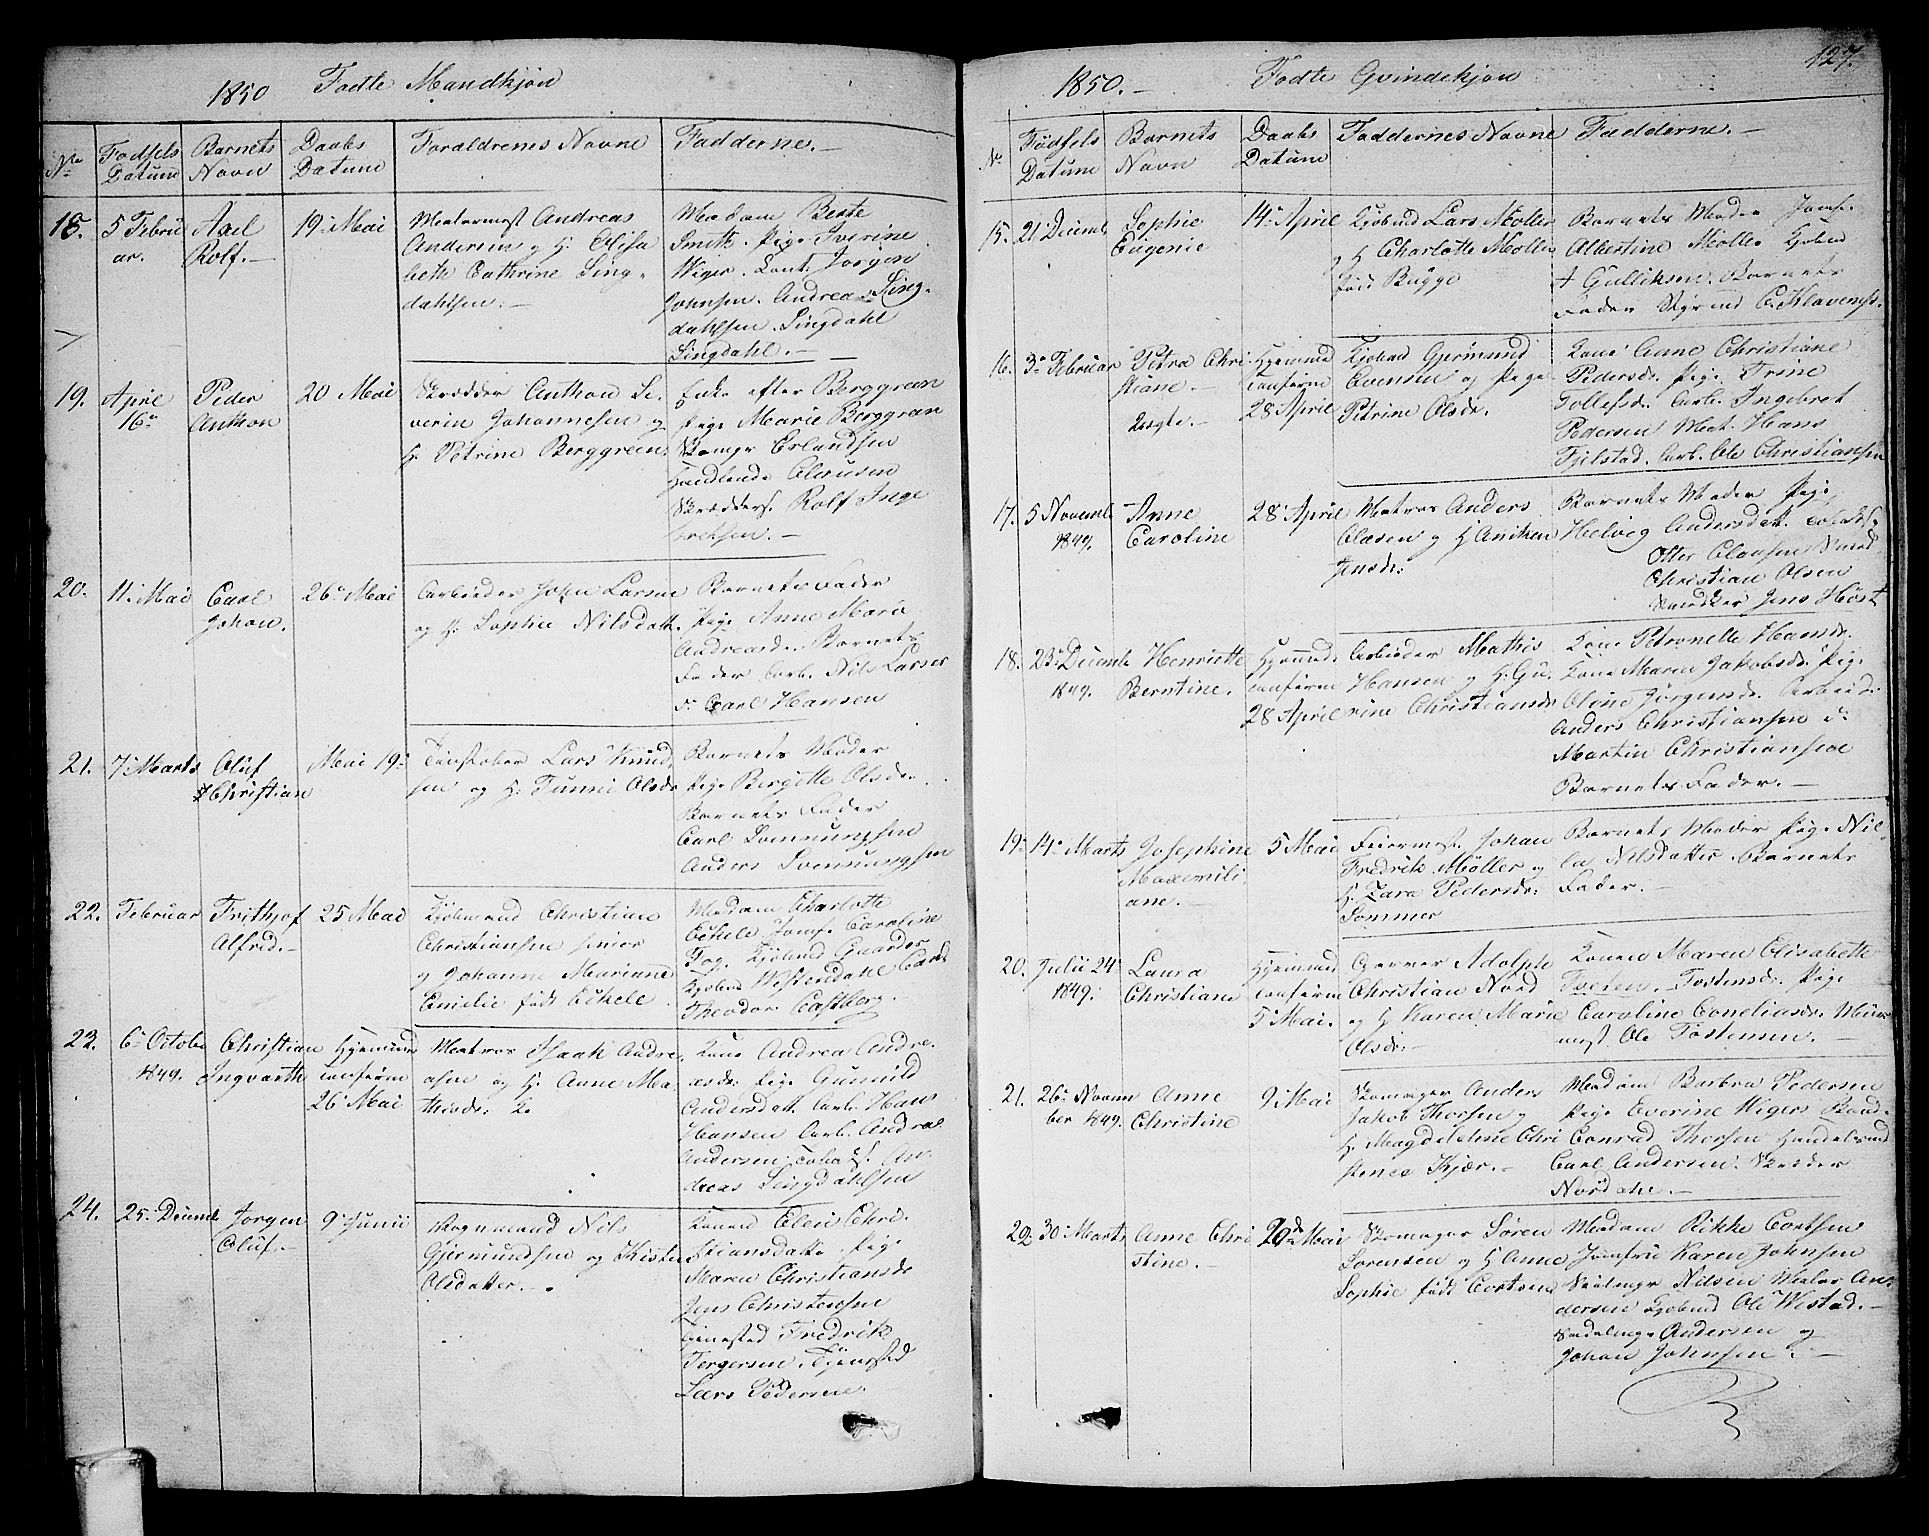 1850 Fødte Mandkjøn
No
Fødsels Datum
Barnets Navn
Daabs Datum
Forældrenes Navne
Fadderne.
18.
5 Febru
ar.
Axel
Rolf.
19 Mai
Andreas
Andersen og H: Elisa
beth Cathrine Ling
dahlsen.
Madam Beate
Smith. Pige Everine
Wiger. Jørgen
Johnsen. Andreas Ling
dahlsen. Lingdahl
Lingdahl.
19.
April
16
Peder
Anthon
20 Mai
Skrædder Anthon Se
verin Johannesen og
H: Petrine Berggreen
Enke efter Berggreen
Pige Marie Berggran
Skomgr Erlandsen
Handlende Clausen
Skrædders. Rolf Inge
bretsen.
20.
11 Mai
Carl
Johan.
26 Mai
Arbeider John Larsen
og H: Sophie Nilsdatt.
Barnets Fader
Pige Anne Marie
Andreasdr. Barnets
Fader Arb. Nils Larsen
Carl Hansen
21.
7 Marts
Oluf
Christian
Mai 19
Tinstøber Lars Knud
sen og H: Tunni Olsdr
Barnets Moder
Pige Bergitte Olsdr
Barnets Fader
Carl Svenningsen
Anders Svenningsen
22.
Februar
Frithjof
Alfred.
25 Mai
Kjøbmand Christian
Christiansen senior
og Johanne Mariane
Emilie født Eckele
Madam Charlotte
Eckele Jomf. Caroline
Fog. Kjøbmd Gaarder
Kjøbmd Westendahl Carl
Theodor Castberg.
23.
6 Octobr
1849.
Christian
Ingvarth
Hjemme
confirm
26 Mai
Matros Isaak Andre
asen og H: Anne Ma
thisdr:
Kone Andrea Andre
asdr: Pige Gunnild
Andersdatt. Arb. Hans
Hansen Arb. Andreas
Andersen. An
dreas Lingdahlsen
24.
25 Decmb
Jørgen
Oluf.
9 Junii
Nils
Gjermundsen og Kisten
Olsdatter.
Konen Eleni Chri
stiansdatte. Pige
Maren Christiansdr
Jens Christensen
Fredrik
Tergersen. Tjenested
Lars Pedersen.
127.
1850. Fødte Qvindekjøn
No
Fødsels Datum
Barnets Navn
Daabs Datum
Faddernes Navne
Fadderne.
15.
21 Decmb
Sophie
Eugenie
14 April
Kjøbmd Lars Møller
og H Charlotte Møller
født Bugge
Barnets Moder Jomf.
Albertine Møller Kjøbmd
A Gulliksen. Barnets
Fader Styrmd C. Klavenes.
16.
3 Februar
Petra Chri
stiane.
Uægte.
Hjemme
confirme
28 April
Gjermund
Evensen og Pige
Petrine Olsdr.
Kone Anne Christiane
Pedersdr. Pige Trine
Tollefsdr. Arb. Ingebret
Pedersen Mat. Hans
Fjelstad. Arb. Ole Christiansen
17.
5 Novemb
1849.
Anne
Caroline
28 April
Matros Anders
Olæsen og H Aniken
Jensdr:
Barnets Moder Pige
Helvig Andersdatt.
Otter Clausen Smed
Christian Olsen
Snedker Jens Høst
18.
23 Decemb
1849.
Henriette
Berntine.
Hjemme
confirm
28 April
Arbeider Mathis
Hansen og H: Gu
rine Christiansdr
Kone Petronelle Hansdr.
Kone Maren Jakobsdr. Pige
Oline Jørgensdr. Arbeidr
Anders Christiansen
Martin Christiansen
Barnets Fader.
19.
14 Marts
Josephine
Maxemili
ane.
5 Mai
Feiermest. Johan
Fredrik Møller og
H. Zara Pedersdr:
Sommer
Barnets Moder Pige Nil
la Nilsdatter Barnets
Fader.
20.
Julii 24
1849.
Laura
Christiane
Hjemme
confirm
5 Mai.
Garver Adolph
Christian Nord
og H Karen Marie
Olsdr:
Konen Maren Elisabeth
Iversen. Tostensdr. Pige
Caroline Corneliusdr. Muur
mest Ole Tostensen.
21.
26 Novem
ber 1849.
Anne
Christine
9 Mai
Skomager Anders
Jakob Thorsen og
H. Magdelehne Chri
stence Kjær.
Madam Barbra Pedersen
Pige Everine Wigers
Conrad Thorsen Handelsmd
Carl Andersen. Skræder
Nordahl.
22
30 Marts
Anne Chri
stine.
20de Mai
Skomager Søren
Sorensen og H Anne
Sophie født Cortsen
Madam Rikke Cortsen
Jomfru Karen Johnsen
Nilsen Maler An
dersen Kjøbmd Ole Westad.
Sadelmgr Andersen og
Johan Johnsen.